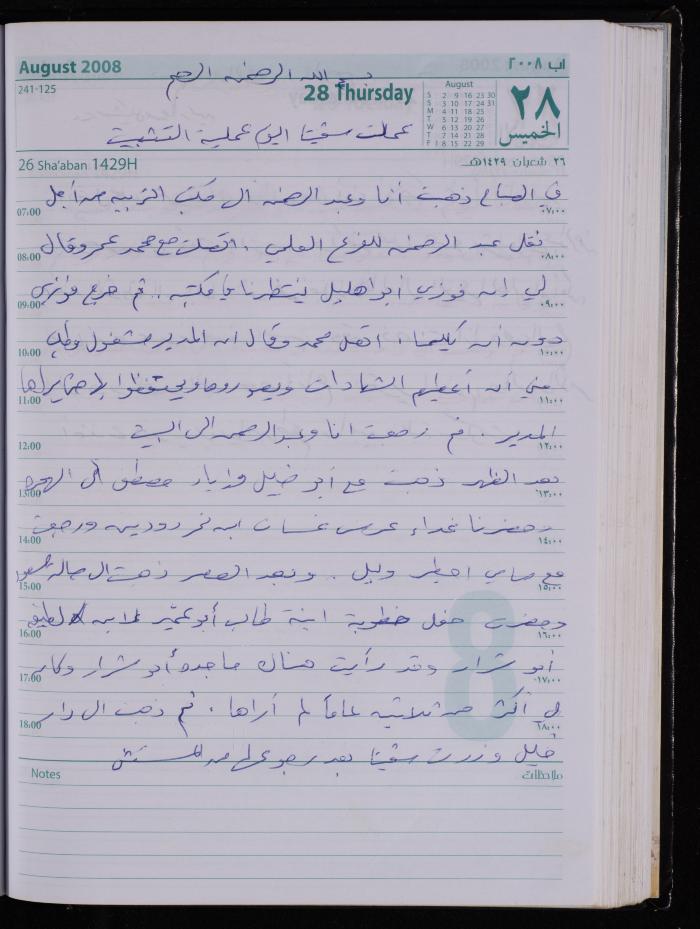 August 2008
اب ٢٠٠٨
بسم الله الرحمن الرحيم
241-125
28 Thursday
August
S 2 9 16 23 30
S 3 10 17 24 31
M 4 11 18 25
T 5 12 19 26
W 6 13 20 27
T 7 14 21 28
F 1 8 15 22 29
٢٨
الخميس
عملت عملية التثبيت
26 Sha'aban 1429H
٢٦ شعبان ١٤٢٩هـ
في الصباح ذهبت أنا وعبد الرحمن الى مكتب التربيه من أجل
07:00 ٠٧:٠٠
نقل عبد الرحمن للفرع العلمي . اتصلت مع محمد عمر وقال
08:00 ٠٨:٠٠
لي إن فوزي أبو اهليل ينتظرنا في مكتبه . ثم خرج فوزي
09:00 ٠٩:٠٠
دون أن يكلمنا . اتصل محمد وقال ان المدير مشغول وطلب
10:00 ١٠:٠٠
مني أن أعطيهم الشهادات
11:00 ١١:٠٠
المدير . ثم رجعت انا وعبد الرحمن الى البيت
12:00 ١٢:٠٠
بعد الظهر ذهبت مع أبو خليل الى
13:00 ١٣:٠٠
وحضرنا غداء عرس غسان ورجعت
14:00 ١٤:٠٠
مع سامي . وبعد العصر ذهبت الى صالة
15:00 ١٥:٠٠
وحضرت حفل خطوبة ابنة طالب أبو
16:00 ١٦:٠٠
أبو شرار وقد رأيت هناك ماجده أبو شرار وكان
17:00 ١٧:٠٠
لي أكثر من ثلاثين عاماً لم أراها . ثم ذهبت الى دار
18:00 ١٨:٠٠
خليل وزرت بعد رجوعها من المستشفى
Notes
ملاحظات